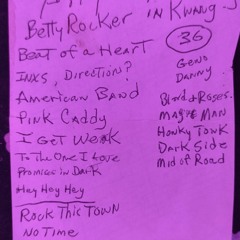 Betty Rocker in Kwang
Beat of a Heart
INXS, Direction?
American Band
Pink Caddy
I Get Weak
To The One I Love
Promises in Dark
Hey Hey Hey
Rock This Town
No Time
36
Geno
Danny
Blood + Roses.
Magic Man
Honky Tonk
Dark Side
Mid of Road